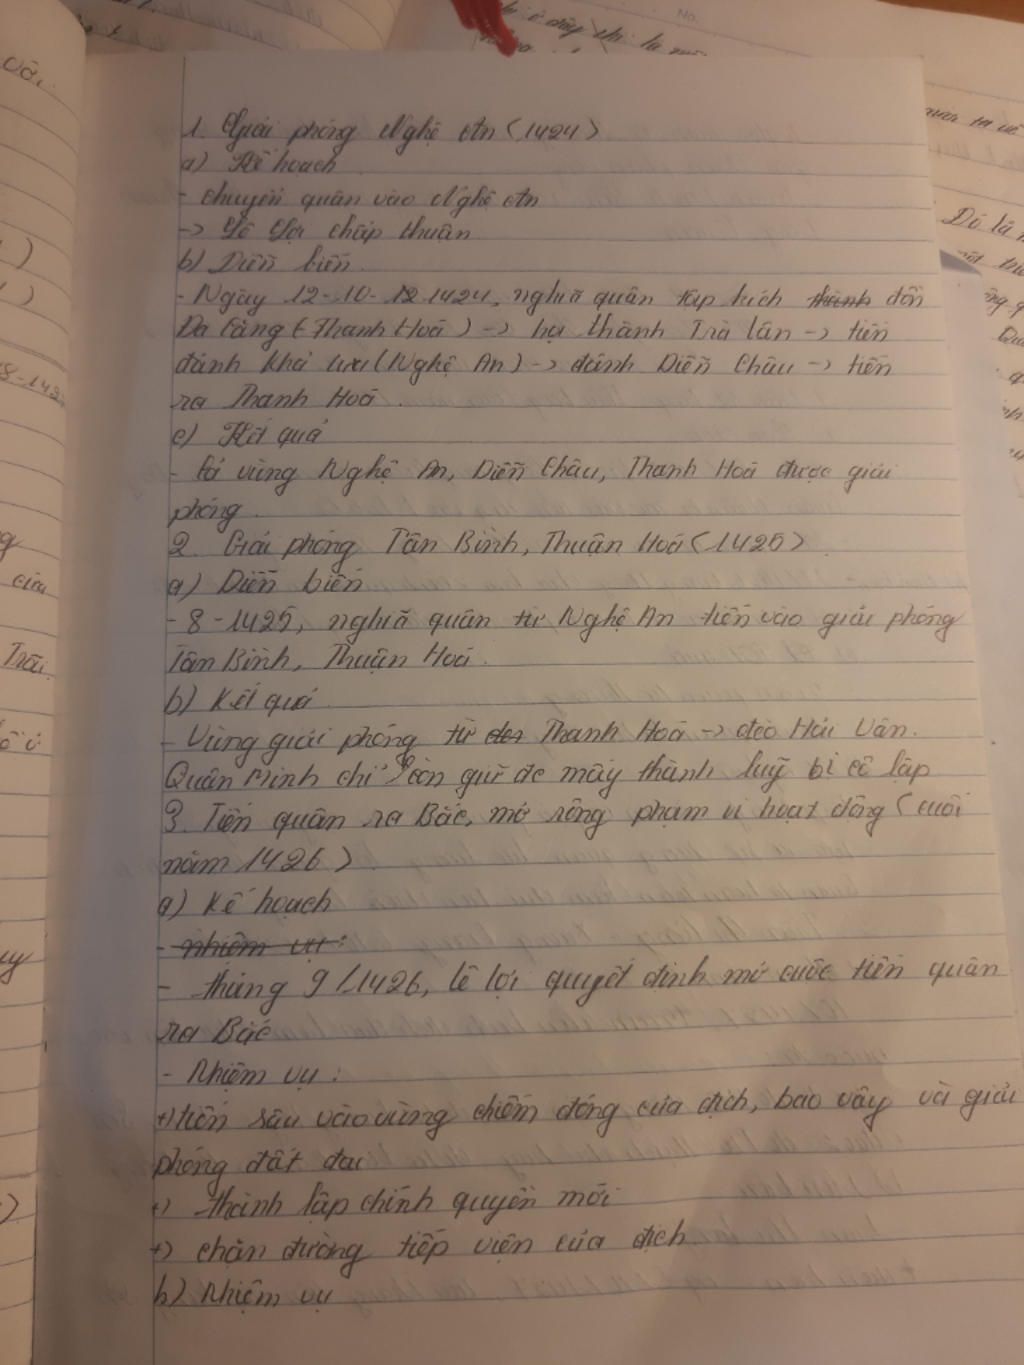 1. Giải phóng Nghệ An (1424)
a) Kế hoạch
- chuyển quân vào Nghệ An
-> Lê Lợi chấp thuận
b) Diễn biến
- Ngày 12-10-1424, nghĩa quân tập kích đồn
Đa Căng (Thanh Hoá) -> hạ thành Trà Lân -> tiến
đánh Khả Lưu (Nghệ An) -> đánh Diễn Châu -> tiến
ra Thanh Hoá.
c) Kết quả
- Cả vùng Nghệ An, Diễn Châu, Thanh Hoá được giải
phóng.
2. Giải phóng Tân Bình, Thuận Hoá (1425)
a) Diễn biến
- 8-1425, nghĩa quân từ Nghệ An tiến vào giải phóng
Tân Bình, Thuận Hoá.
b) Kết quả
- Vùng giải phóng từ Thanh Hoá -> đèo Hải Vân.
Quân Minh chỉ còn giữ đc mấy thành luỹ bị cô lập
3. Tiến quân ra Bắc, mở rộng phạm vi hoạt động (cuối
năm 1426)
a) Kế hoạch
- nhiệm vụ:
- tháng 9/1426, lê lợi quyết định mở cuộc tiến quân
ra Bắc
- Nhiệm vụ:
+) tiến sâu vào vùng chiếm đóng của địch, bao vây và giải
phóng đất đai
+) thành lập chính quyền mới
+) chặn đường tiếp viện của địch
b) Nhiệm vụ